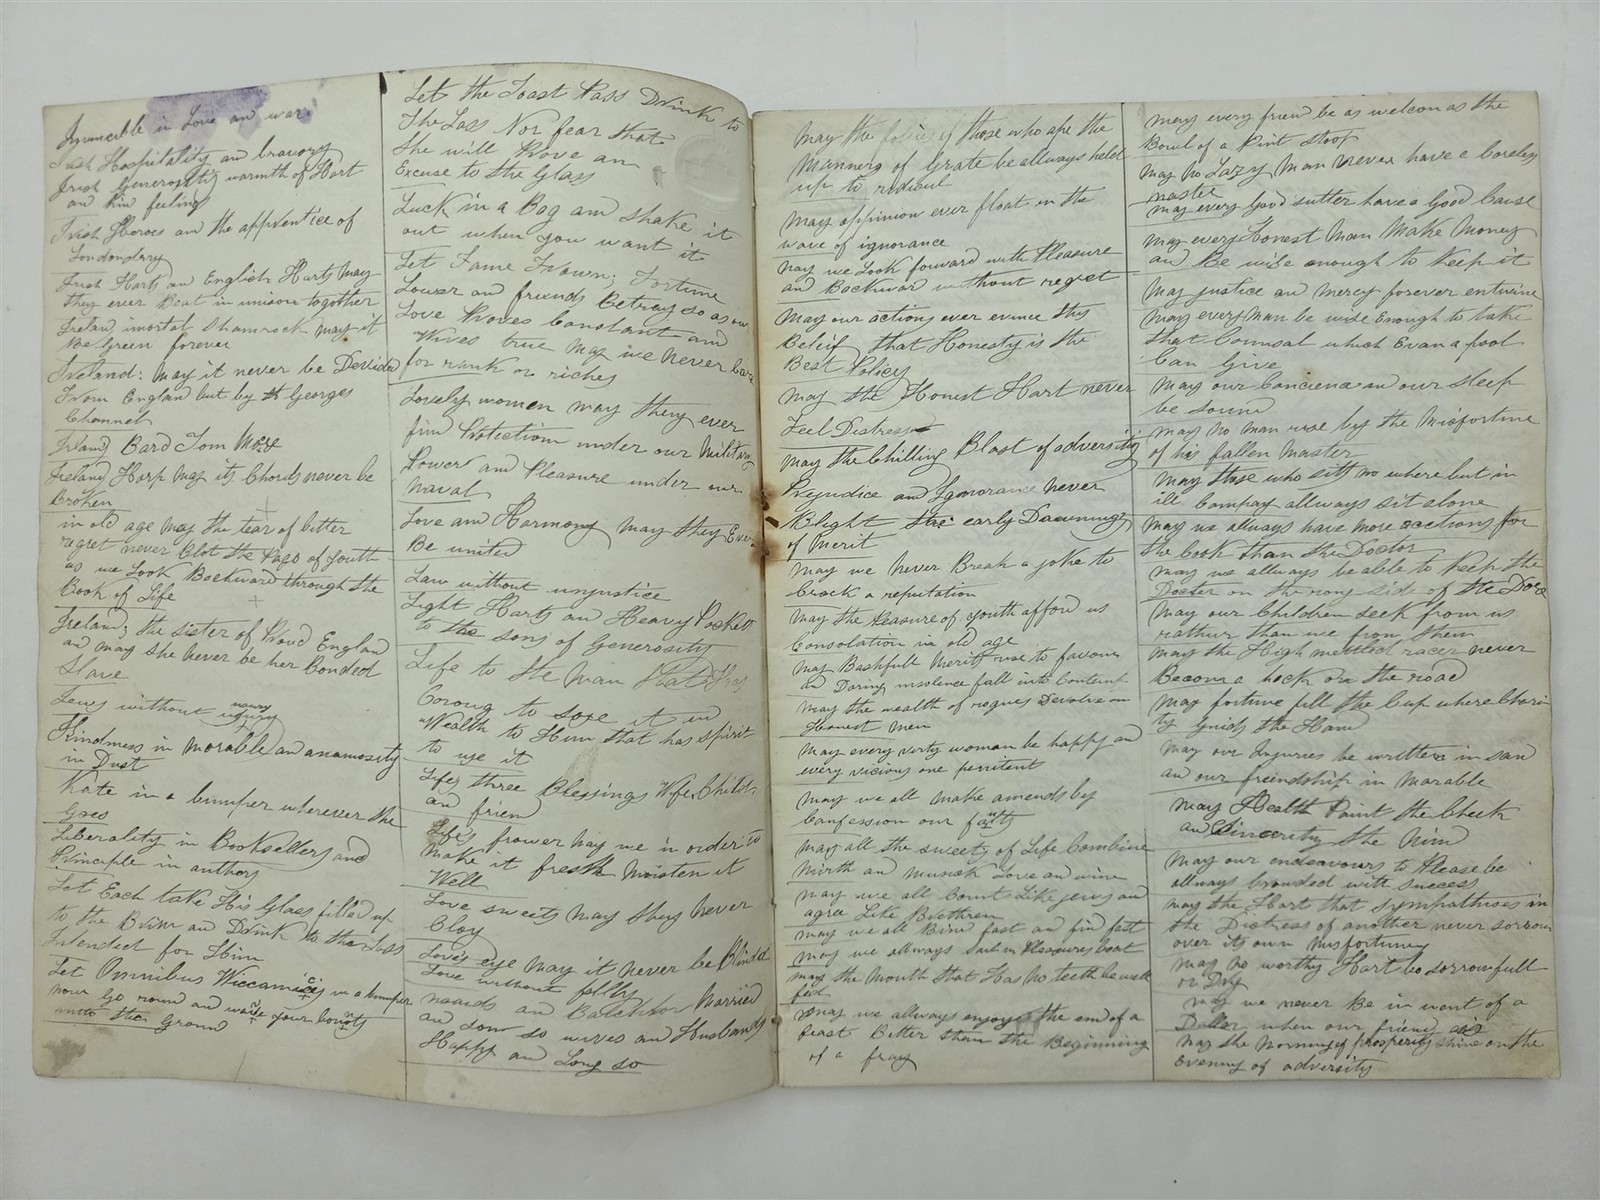 Invincible in Love an war
Irish Hospitality an bravery
Irish Generosity warmth of Hart
an kin feeling
Irish Heroes an the apprentice of
Londonderry
Irish Harts an English Harts may
they ever Beat in unison together
Ireland imortal Shamrock may it
Be Green forever
Ireland: may it never be Devided
From England but by St Georges
Channel
Irland Bard Tom More
Ireland Harp may its Chords never be
broken
in old age may the tear of bitter
regret never blot the Page of youth
as we Look Backward through the
Book of Life
Ireland; the Sister of Proud England
an may she never be her Bonded
Slave
Jews without usury
Kindness in Morable an anamosity
in Dust
Kate in a bumper wherever she
Goes
Liberality in Booksellers and
Principle in authors
Let Each take His Glass filled up
to the Brim an Drink to the Lass
Intended for Him
Let Omnibus Wiccamicis in a bumper
now Go round and your bounty
unto the Ground
Let the Toast Pass Drink to
The Lass Nor fear that
She will Prove an
Excuse to the Glass
Luck in a Bag and Shake it
out when you want it
Let Fame Frown; Fortune
Lower an friends Betray so as our
Love Proves Constant and
Wives true may we never care
for rank or riches
Lovely women may they ever
find Protection under our Military
Power and Pleasure under our
naval
Love and Harmony may they Ever
Be united
Law without unjustice
Light Harts an Heavy Pockets
to the sons of Generosity
Life to the man that Has
Corous to Lose it an
Wealth to Him that has spirit
to use it
Lifes three Blessings Wife, Child,
an frien
Lifes flower may we in order to
make it fresh Moisten it
Well
Love sweets may they never
Cloy
Loves eye may it never be Blinded
Love without folly
maids an Batchlor Married
an soon so wives an Husbands
Happy and Long so
may the of those who ape the
Manners of Grate be allways held
up to ridicul
may oppinion ever float on the
wave of ignorance
may we Look forward with Pleasure
and Backwar without regret
may our actions ever evince this
Beleif that Honesty is the
Best Policy
may the Honest Hart never
Feel Distress
may the Chilling Blast of adversity
Prejudice and Ignorance Never
Blight the early Dawnings
of merit
may we never Break a joke to
Crack a reputation
may the Pleasure of youth afford us
Consolation in old age
may Bashfull Merit rise to favour
an Daring insolence fall into Contemp
may the wealth of rogues Devolve on
Honest men
may every virty woman be happy an
every vicious one penitent
may we all make amends by
Confession our fautts
may all the sweets of Life Combine
mirth and musick Love and wine
may we all Count Like Jews an
agree Like Brethren
may we all Bind fast an find fast
may we allways in Pleasures boat
may the mouth that Has No teeth be well
fed
may we allways enjoy the end of a
feast Better than the Beginning
of a fray
may every frien be as welcom as the
Bowl of a Pint stoop
may no Lazy man never have a careless
master
may every Good sutter have a Good Cause
may every Honest man Make Money
an Be wise enough to keep it
may justice an mercy forever entwine
may every man be wise Enough to take
that Counsal which Evan a fool
Can Give
may our Concience an our sleep
be sound
may no man rise by the misfortune
of his fallen Master
may those who sitts no where but in
ill Compay allways sit alone
may we allways have more occtions for
the Cook than the Doctor
may we allways be able to keep the
Docter on the rong side of the Dore
may our Children seek from us
rathur than we from them
may the High mettled racer never
Become a hack on the road
may fortune fill the Cup where Chari
ty Guids the Hand
may our Injuries be written in san
an our friendship in Marable
may Health Paint the Cheek
an Sincerity the Mind
may our endeavours to Please be
allways Crouded with success
may the Hart that sympathises in
the Distress of another never sorrow
over its own misfortunes
may no worthy Hart be sorrowfull
or Dry
may we never Be in want of a
Doller when our friend
may the morning of prosperity shine on the
Evening of adversity